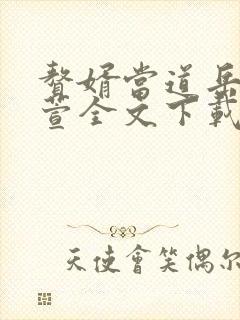 贅婿當道岳
萱全文下載
天使會笑偶尔